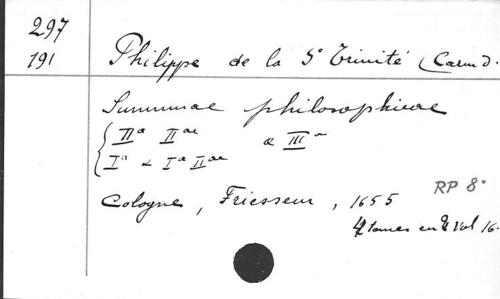 297
191
Philippe de la Ste Trinité (Carm d.
Summae philosophicae
IIa IIae & IIIa
Ia & Ia IIae
RP 8°
Cologne, Friessem, 1655
4 tomes en 2 vol 16-